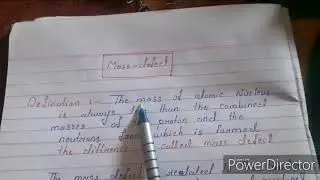 Mass-defect
Defination :- The mass of atomic Nucleus
is always less than the combined
masses of the proton and the
neutrons from which is formed
the difference called mass defect
The mass defect
PowerDirector